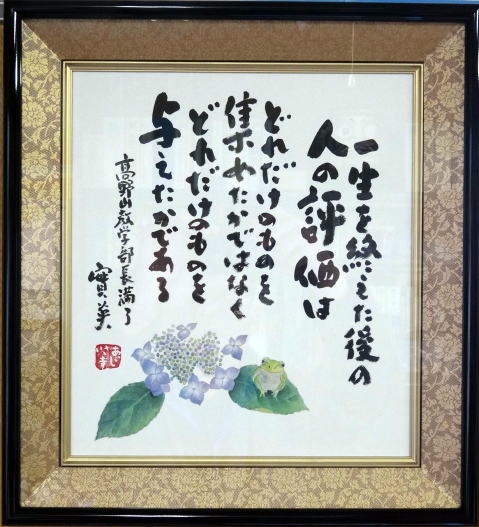 一生を終えた後の
人の評価は
どれだけのものを
集めたかではなく
どれだけのものを
与えたかである
高野山教学部長満了
實英